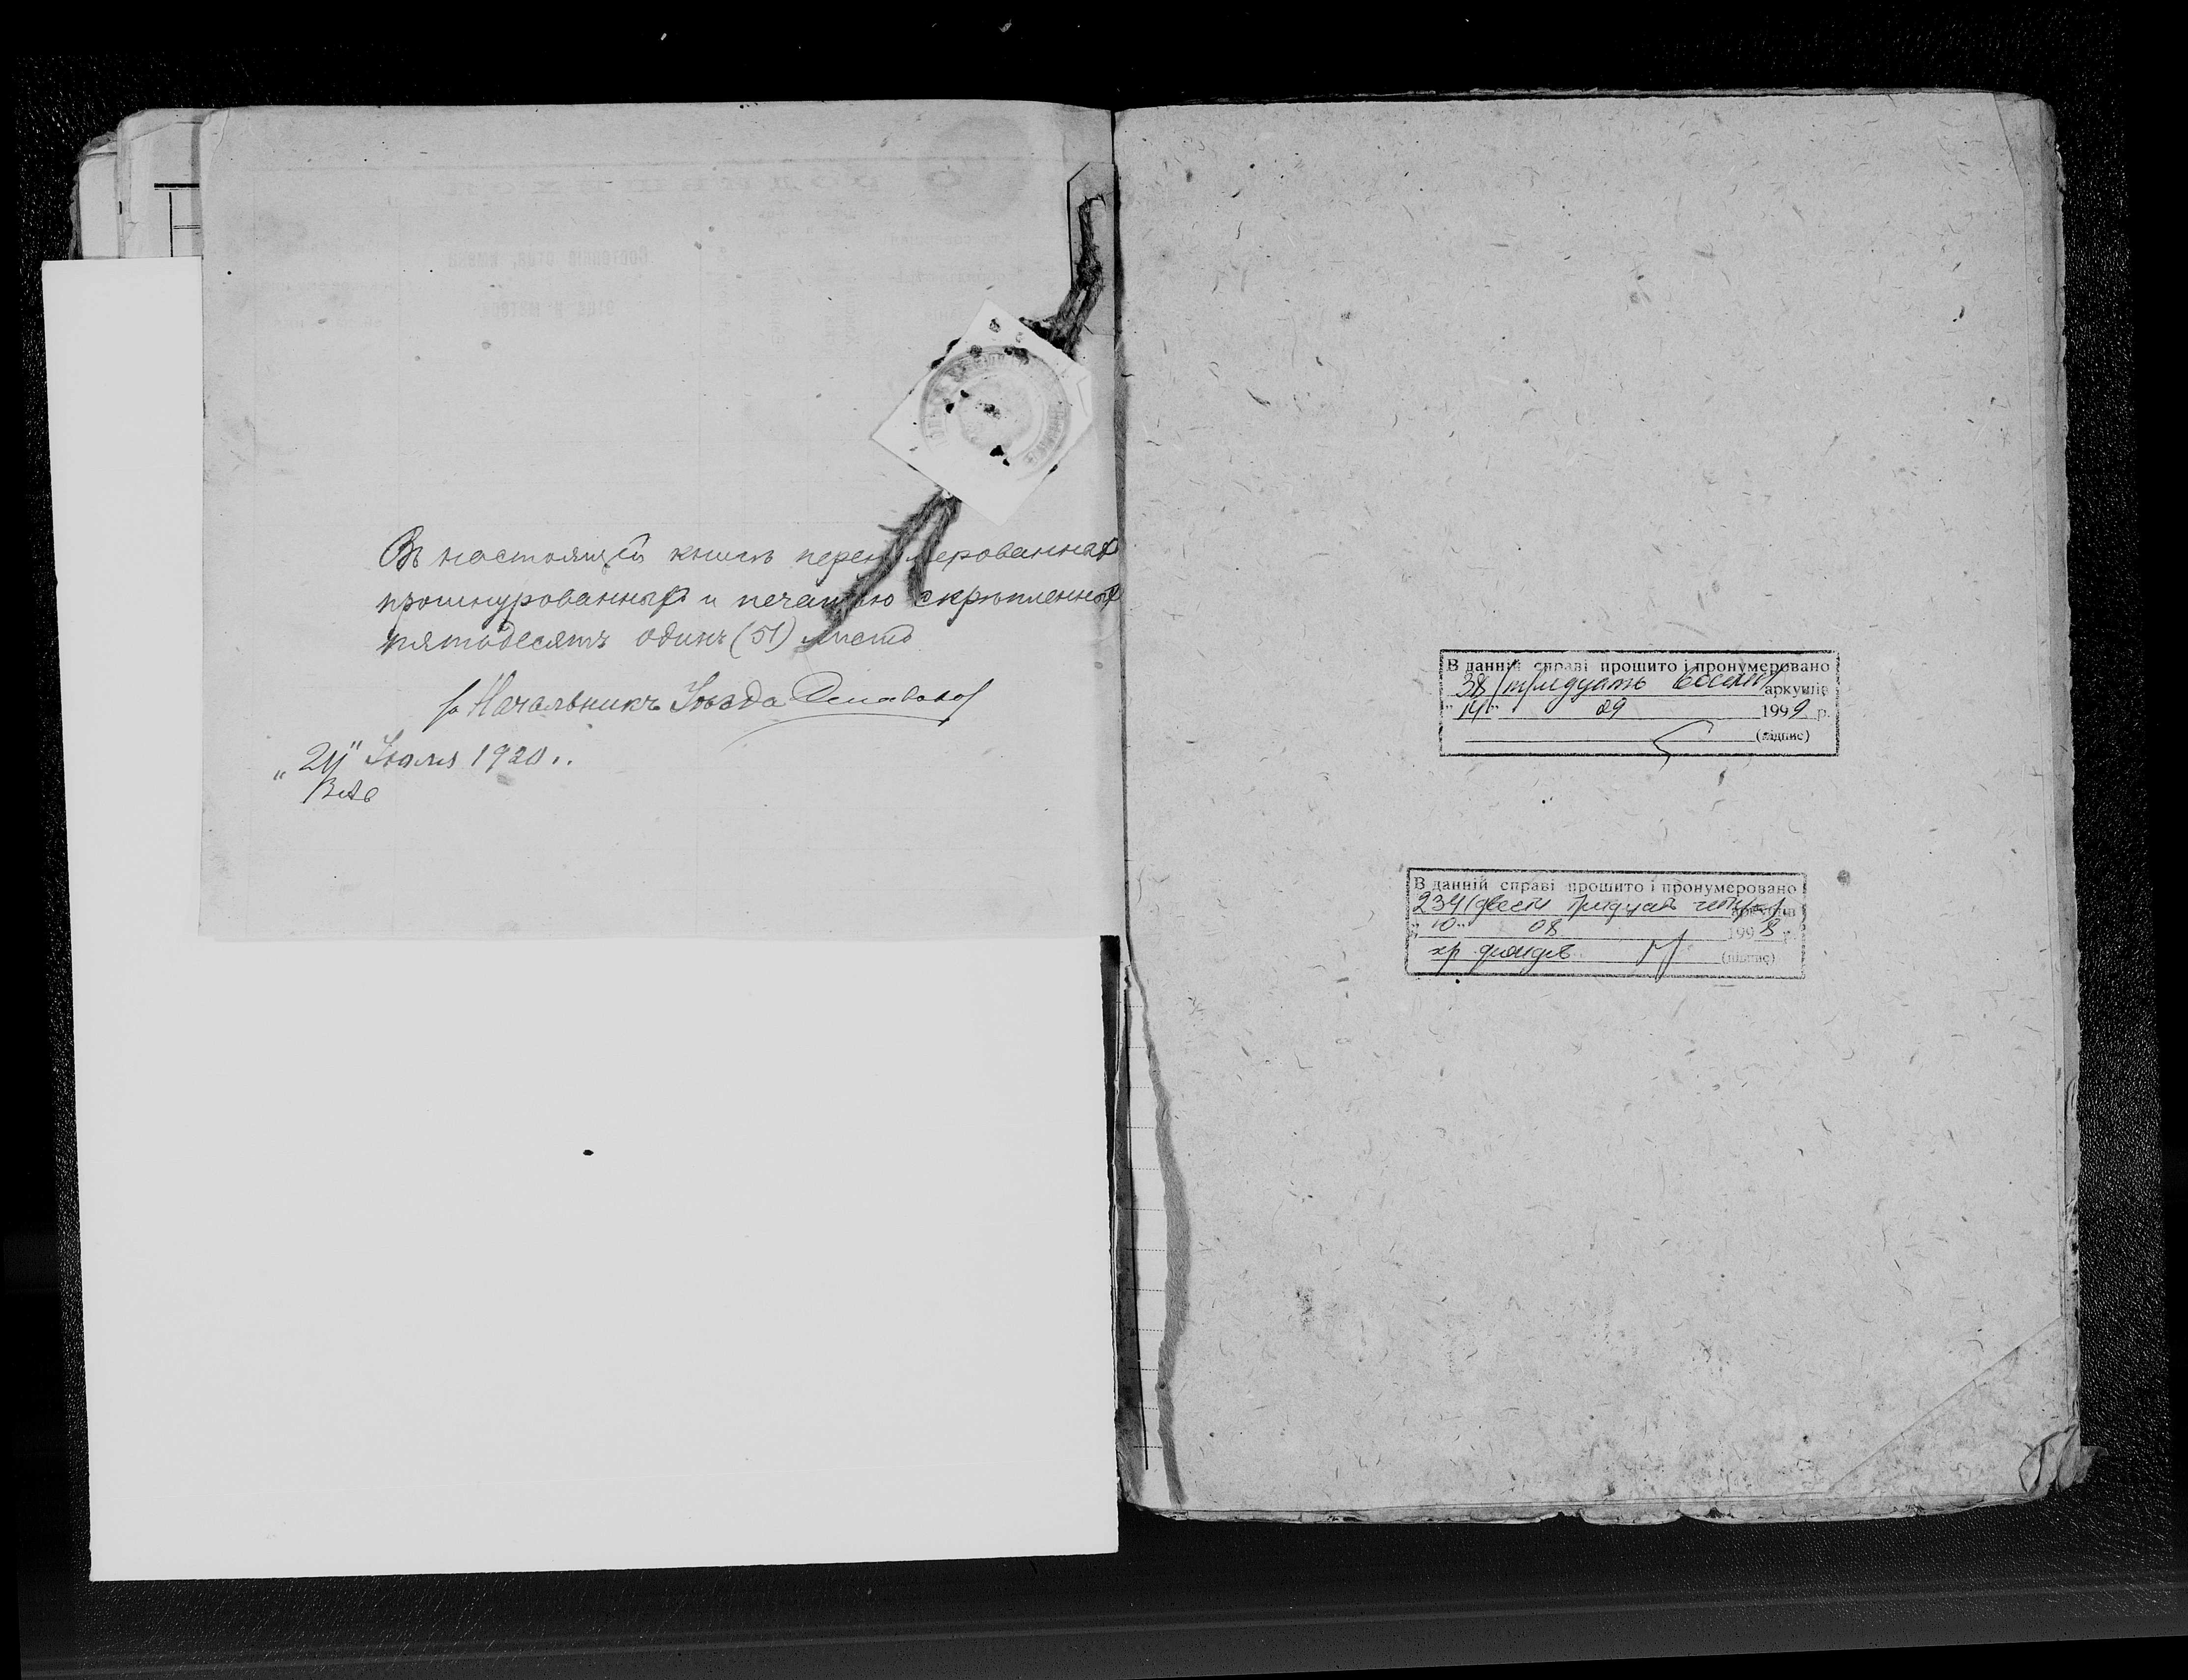 Въ настоящей книгѣ перенумерованныхъ
прошнурованныхъ и печатью скрѣпленныхъ
пятьдесятъ одинъ (51) листъ
Начальникъ Уѣзда
"24" Іюля 1920 г.
В данній справі прошито і пронумеровано
38 (тридцать восемь) аркушів
"14" 09 1999 р.
(підпис)
В данній справі прошито і пронумеровано
234 (двести тридцать четыре) аркушів
"10" 08 1998 р.
хр фондів (підпис)